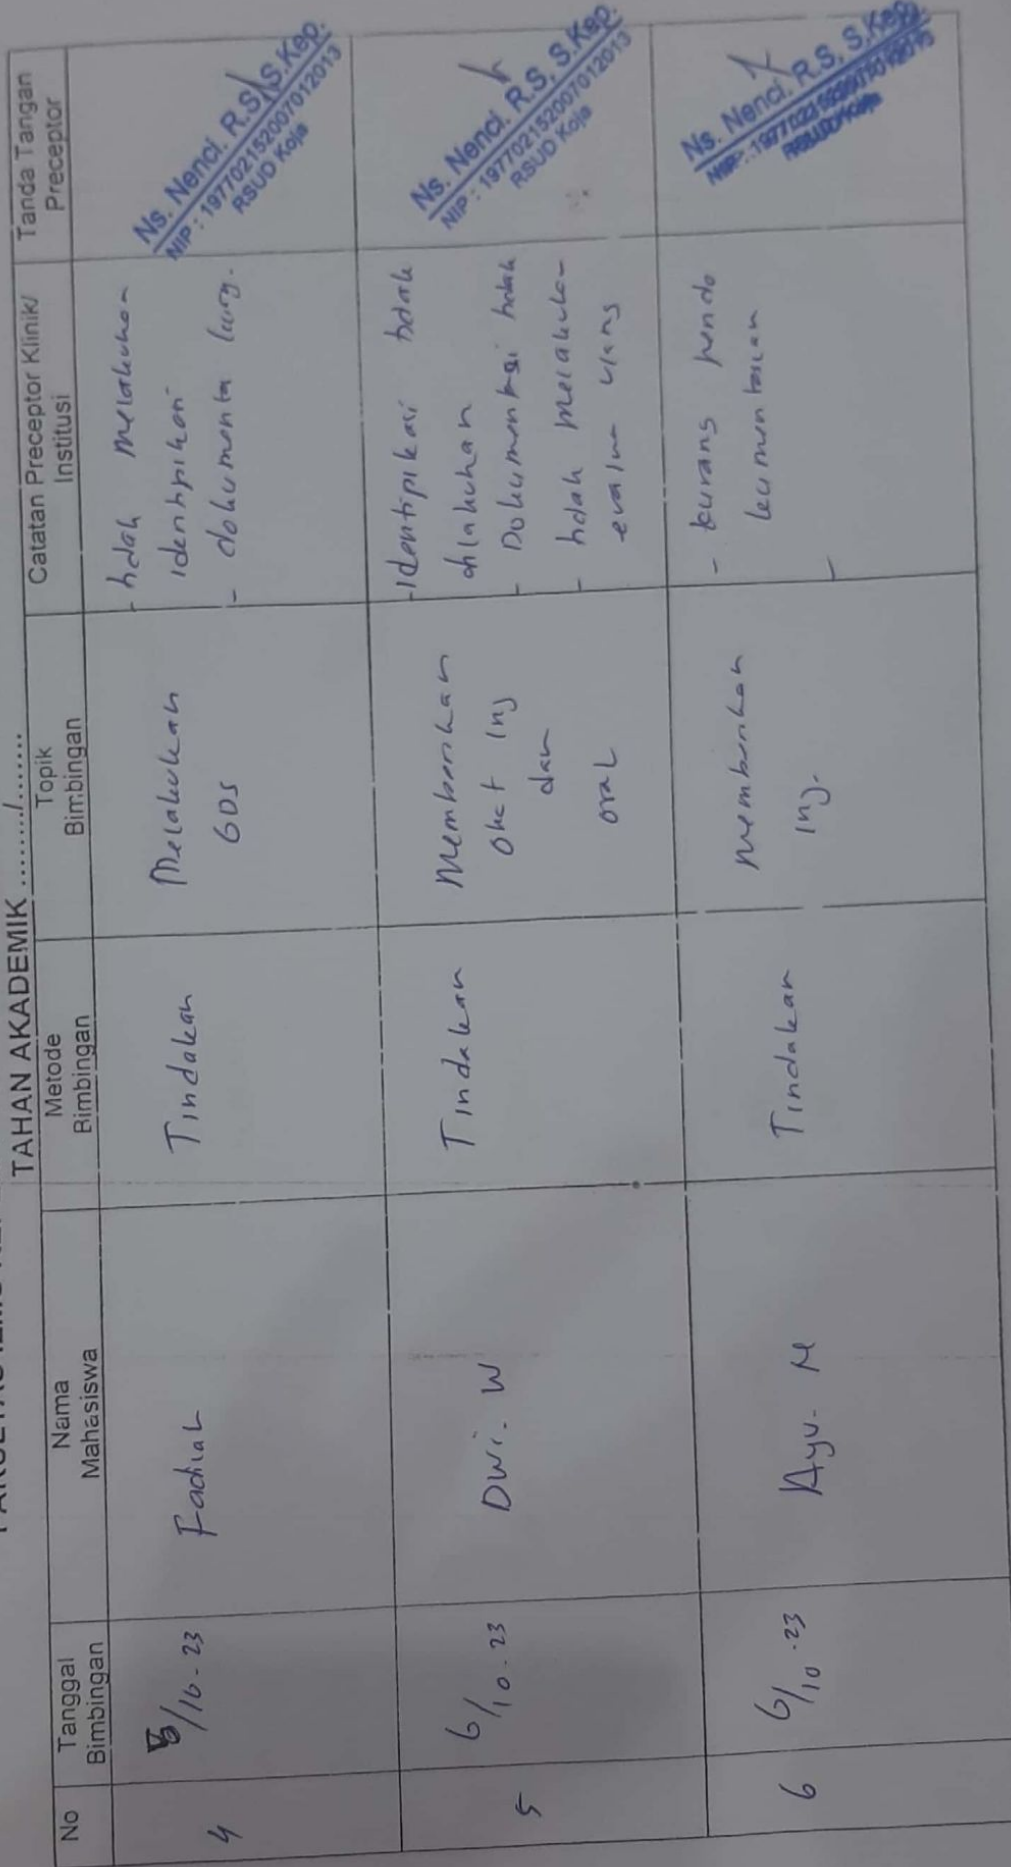 TAHAN AKADEMIK ......../.......
No
Tanggal
Bimbingan
Nama
Mahasiswa
Metode
Bimbingan
Topik
Bimbingan
Catatan Preceptor Klinik/
Institusi
Tanda Tangan
Preceptor
4
/10-23
Fachal
Tindakan
Melakukan
GDS
- tidak melakukan
identifikasi
- dokumentasi kurang.
Ns. Nenci. R.S, S.Kep.
NIP : 197702152007012013
RSUD Koja
5
6/10-23
Dwi. W
Tindakan
Memberikan
Obat Inj
dan
oral
- Identipikasi tidak
dilakukan
- Dokumentasi tidak
- tidak melakukan
evaluasi ulang
Ns. Nenci. R.S, S.Kep.
NIP : 197702152007012013
RSUD Koja
6
6/10-23
Ayu. M
Tindakan
memberikan
Inj.
- kurang
-
Ns. Nenci. R.S, S.Kep.
NIP : 197702152007012013
RSUD Koja